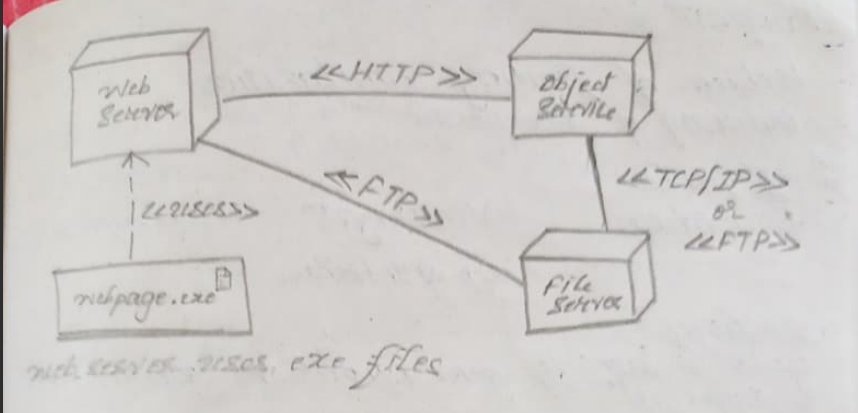 Web
Server
<<HTTP>>
Object
Service
<<uses>>
<<FTP>>
<<TCP/IP>>
or
<<FTP>>
webpage.exe
File
Server
web server uses exe files